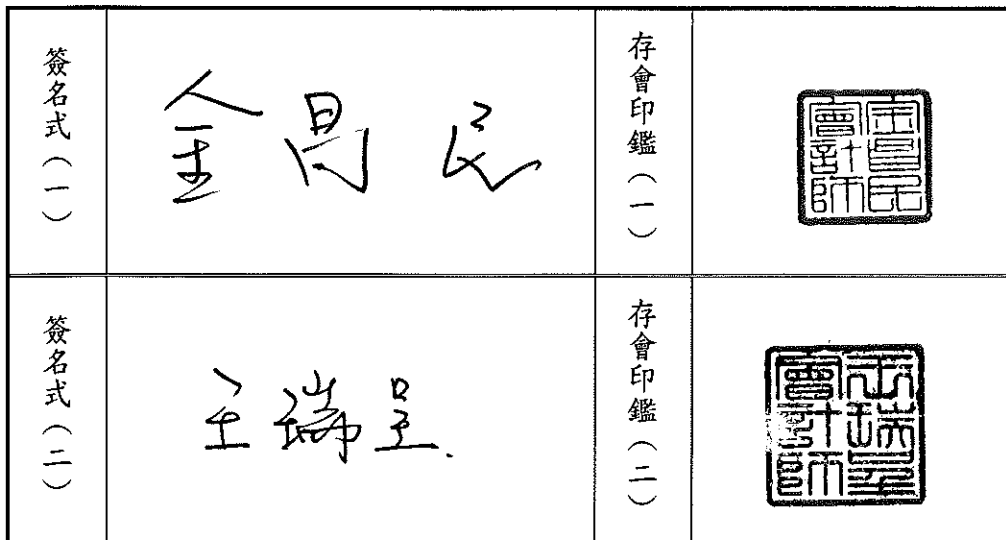 簽名式(一)
金昌民
存會印鑑(一)
金昌民會計師
簽名式(二)
王瑞呈
存會印鑑(二)
王瑞呈會計師